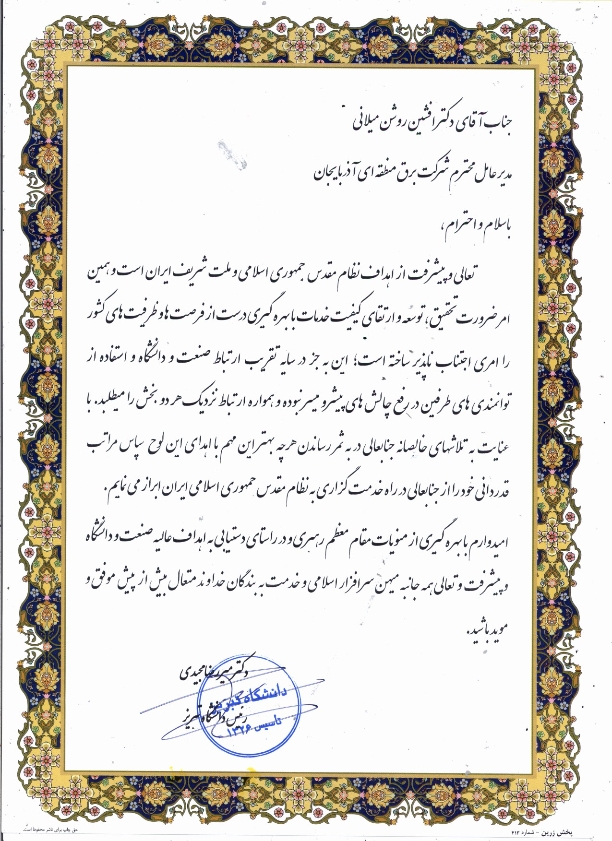 جناب آقای دکتر افشین روشن میلانی
مدیر عامل محترم شرکت برق منطقه ای آذربایجان
باسلام و احترام،
تعالی و پیشرفت از اهداف نظام مقدس جمهوری اسلامی و ملت شریف ایران است و همین
امر ضرورت تحقیق، توسعه و ارتقای کیفیت خدمات با بهره گیری درست از فرصت ها و ظرفیت های کشور
را امری اجتناب ناپذیر ساخته است؛ این به جز در سایه تقریب ارتباط صنعت و دانشگاه و استفاده از
توانمندی های طرفین در رفع چالش های پیشرو میسر نبوده و همواره ارتباط نزدیک هر دو بخش را میطلبد. با
عنایت به تلاشهای خالصانه جنابعالی در به ثمر رساندن هرچه بهتر این مهم با اهدای این لوح سپاس مراتب
قدردانی خود را از جنابعالی در راه خدمت گزاری به نظام مقدس جمهوری اسلامی ایران ابراز می نمایم.
امیدوارم با بهره گیری از منویات مقام معظم رهبری و در راستای دستیابی به اهداف عالیه صنعت و دانشگاه
و پیشرفت و تعالی همه جانبه میهن سرافراز اسلامی و خدمت به بندگان خداوند متعال بیش از پیش موفق و
موید باشید.
دکتر میررضا مجیدی
رئیس دانشگاه تبریز
دانشگاه تبریز
تاسیس ۱۳۲۶
پخش زرین - شماره ۴۱۲
حق چاپ برای ناشر محفوظ است